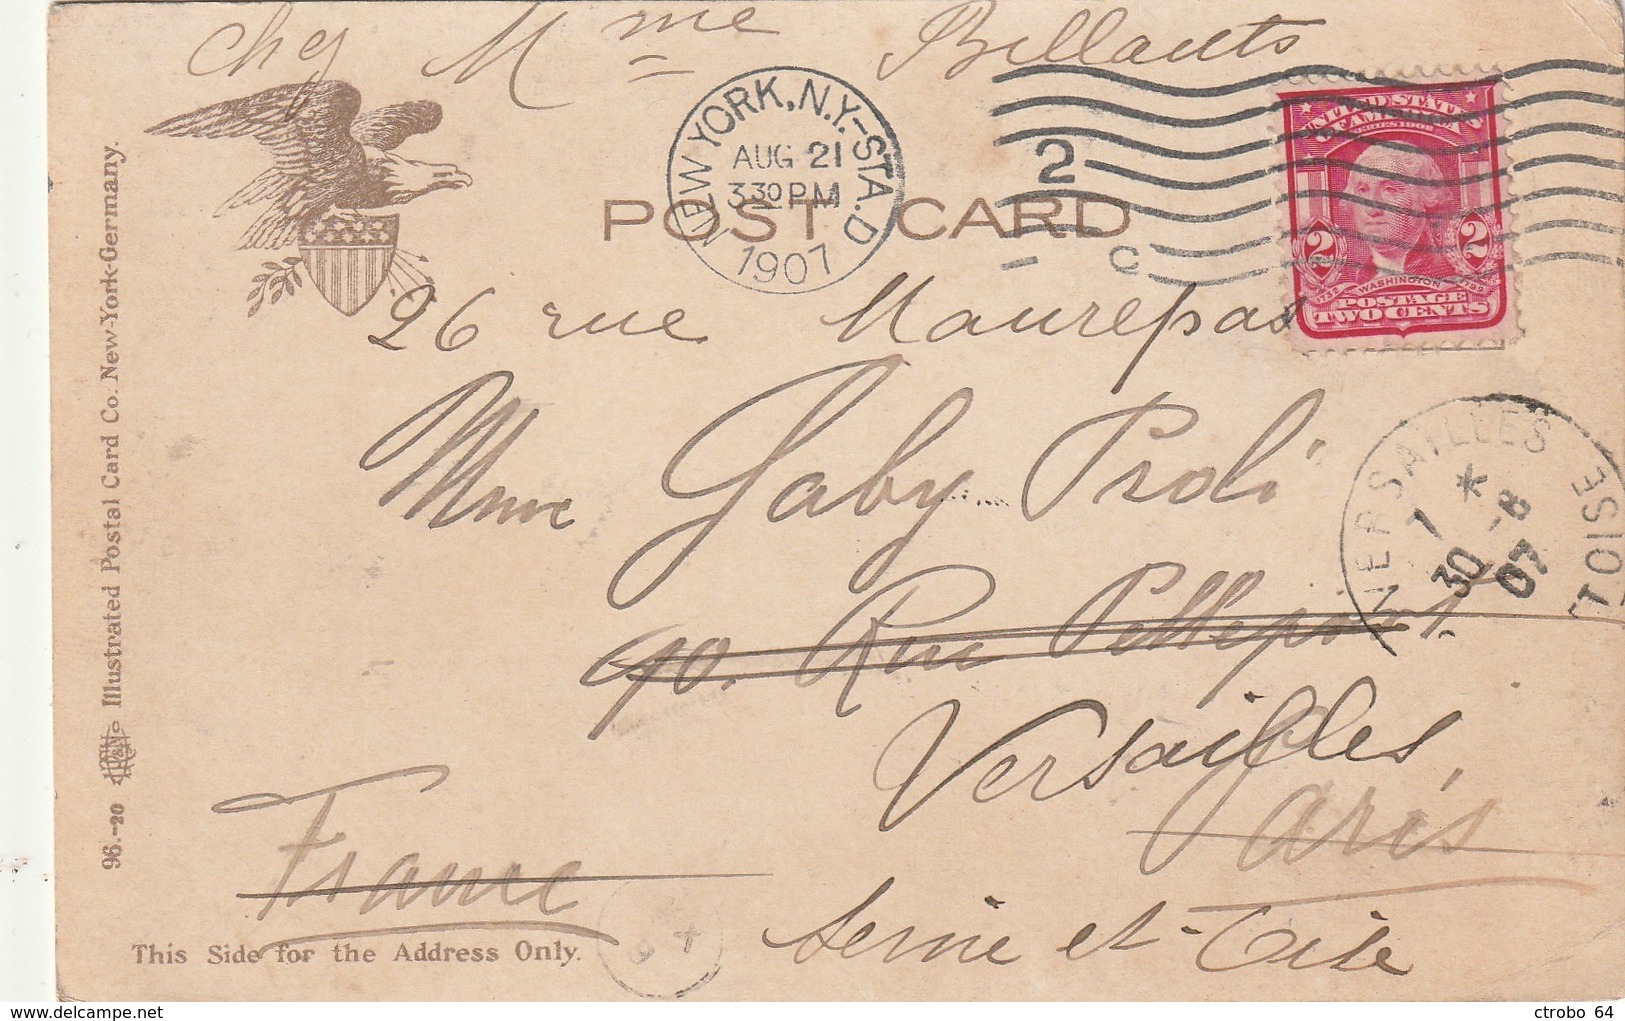 Chez Mme Billants
NEW YORK, N.Y.-STA. D
AUG 21
3 30 PM
1907
2
1 C
UNITED STATES
OF AMERICA
SERIES 1902
2 2
1732 WASHINGTON 1799
POSTAGE
TWO CENTS
POST CARD
26 rue Maurepas
Mme Gaby Proli
VERSAILLES
S. ET OISE
*
7
30 -8
07
90. Rue
Versailles,
Paris
France
Seine et-Oise
This Side for the Address Only.
96.-20
Illustrated Postal Card Co. New-York-Germany.
www.delcampe.net
ctrobo 64